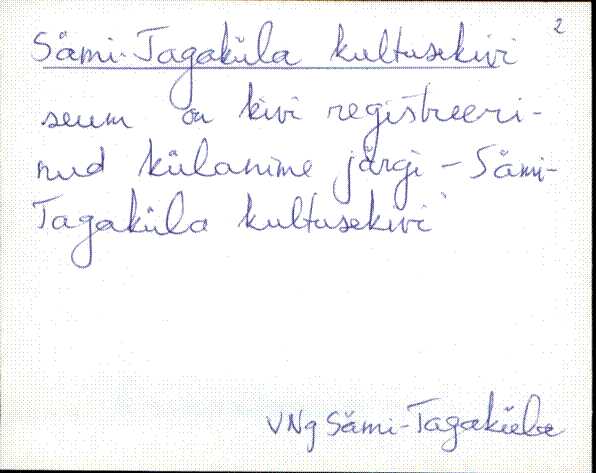 2
Sämi-Tagaküla kultusekivi
seum on kivi registreeri-
nud külanime järgi - Sämi-
Tagaküla kultusekivi"
VNg Sämi-Tagaküla